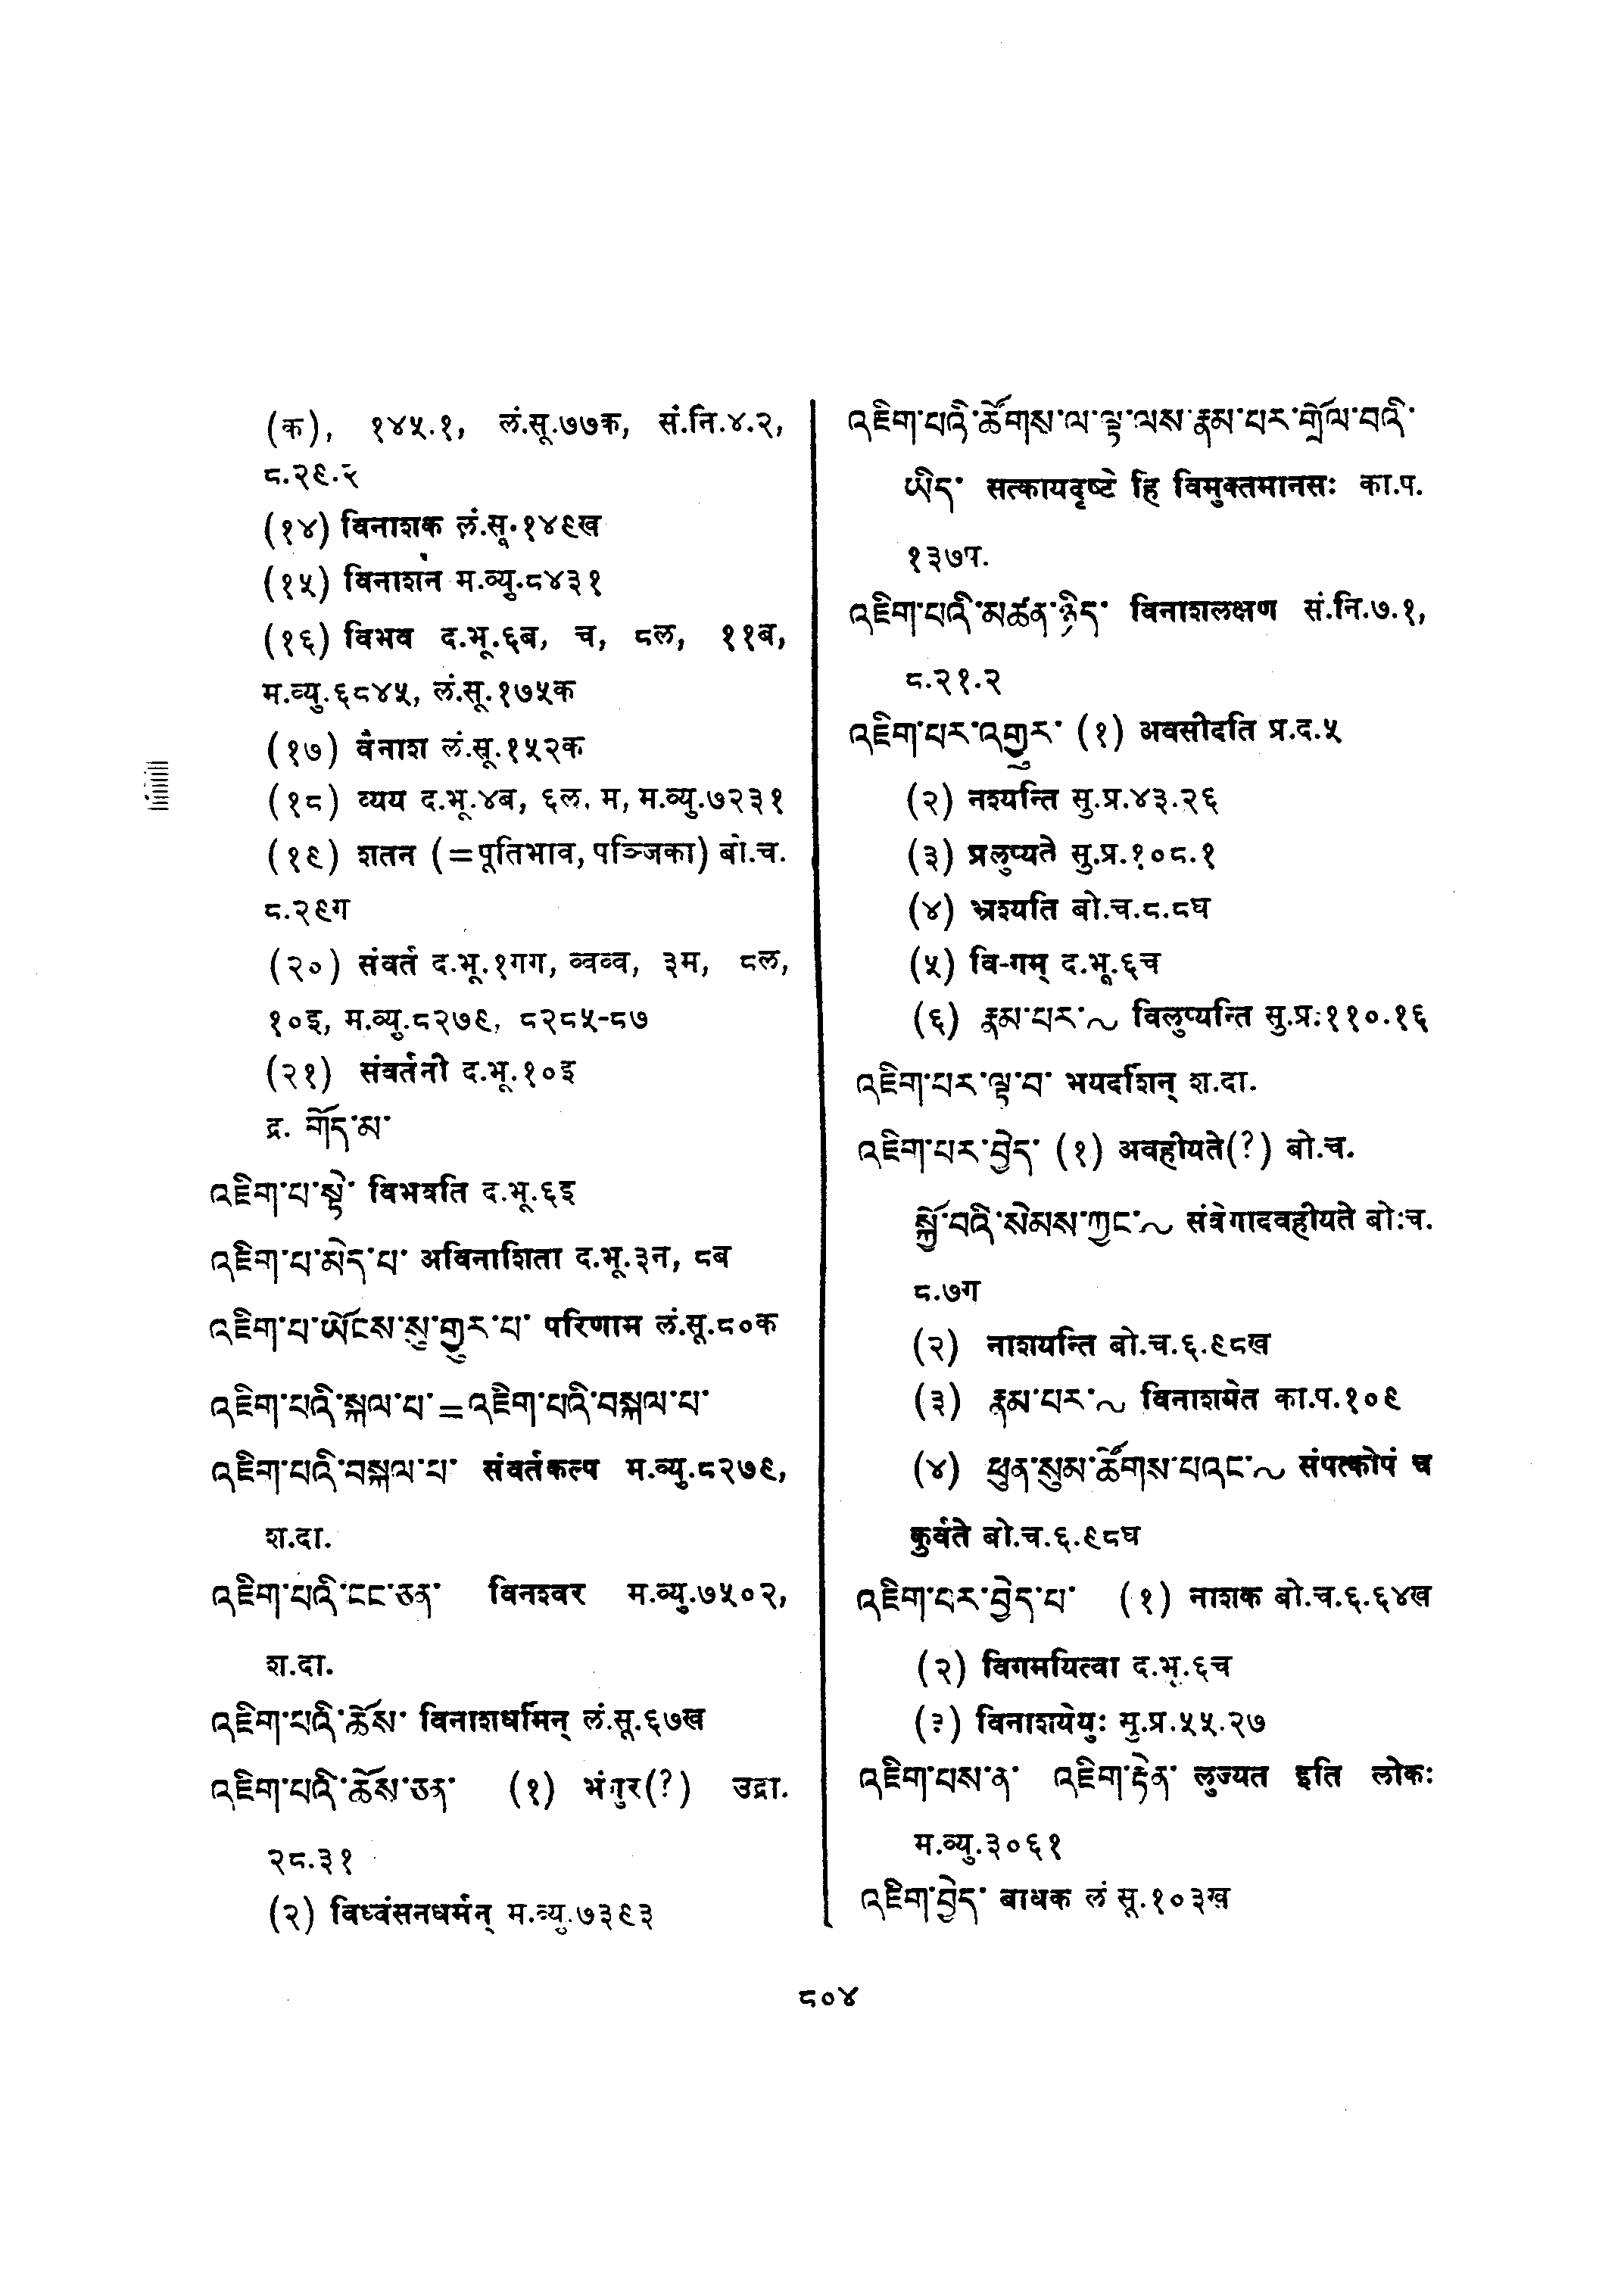 (क), १४५.१, लं.सू.७७क, सं.नि.४.२,
८.२९.२
(१४) विनाशक लं.सू.१४९ख
(१५) विनाशन म.व्यु.८४३१
(१६) विभव द.भू.६ब, च, ८ल, ११ब,
म.व्यु.६८४५, लं.सू.१७५क
(१७) वैनाश लं.सू.१५२क
(१८) व्यय द.भू.४ब, ६ल, म, म.व्यु.७२३१
(१९) शतन (=पूतिभाव, पञ्जिका) बो.च.
८.२९ग
(२०) संवर्त द.भू.१गग, व्वव्व, ३म, ८ल,
१०इ, म.व्यु.८२७९, ८२८५-८७
(२१) संवर्तनी द.भू.१०इ
द्र. གོད་མ་
འཇིག་པ་སྟེ་ विभवति द.भू.६इ
འཇིག་པ་མེད་པ་ अविनाशिता द.भू.३न, ८ब
འཇིག་པ་ཡོངས་སུ་གྱུར་པ་ परिणाम लं.सू.८०क
འཇིག་པའི་སྐལ་པ་=འཇིག་པའི་བསྐལ་པ་
འཇིག་པའི་བསྐལ་པ་ संवर्तकल्प म.व्यु.८२७९,
श.दा.
འཇིག་པའི་ངང་ཅན་ विनश्वर म.व्यु.७५०२,
श.दा.
འཇིག་པའི་ཆོས་ विनाशधर्मिन् लं.सू.६७ख
འཇིག་པའི་ཆོས་ཅན་ (१) भंगुर(?) उद्रा.
२८.३१
(२) विध्वंसनधर्मन् म.व्यु.७३९३
འཇིག་པའི་ཚོགས་ལ་ལྟ་ལས་རྣམ་པར་གྲོལ་བའི་
ཡིད་ सत्कायदृष्टे हि विमुक्तमानसः का.प.
१३७प.
འཇིག་པའི་མཚན་ཉིད་ विनाशलक्षण सं.नि.७.१,
८.२१.२
འཇིག་པར་འགྱུར་ (१) अवसीदति प्र.द.५
(२) नश्यन्ति सु.प्र.४३.२६
(३) प्रलुप्यते सु.प्र.१०८.१
(४) भ्रश्यति बो.च.८.८घ
(५) वि-गम् द.भू.६च
(६) རྣམ་པར་~ विलुप्यन्ति सु.प्र.११०.१६
འཇིག་པར་ལྟ་བ་ भयदर्शिन् श.दा.
འཇིག་པར་བྱེད་ (१) अवहीयते(?) बो.च.
སྐྱོ་བའི་སེམས་ཀྱང་~ संवेगादवहीयते बो.च.
८.७ग
(२) नाशयन्ति बो.च.६.९८ख
(३) རྣམ་པར་~ विनाशयेत का.प.१०९
(४) ཕུན་སུམ་ཚོགས་པའང་~ संपत्कोपं च
कुर्वते बो.च.६.९८घ
འཇིག་པར་བྱེད་པ་ (१) नाशक बो.च.६.६४ख
(२) विगमयित्वा द.भू.६च
(३) विनाशयेयुः सु.प्र.५५.२७
འཇིག་པས་ན་ འཇིག་རྟེན་ लुज्यत इति लोकः
म.व्यु.३०६१
འཇིག་བྱེད་ बाधक लं सू.१०३ख
८०४